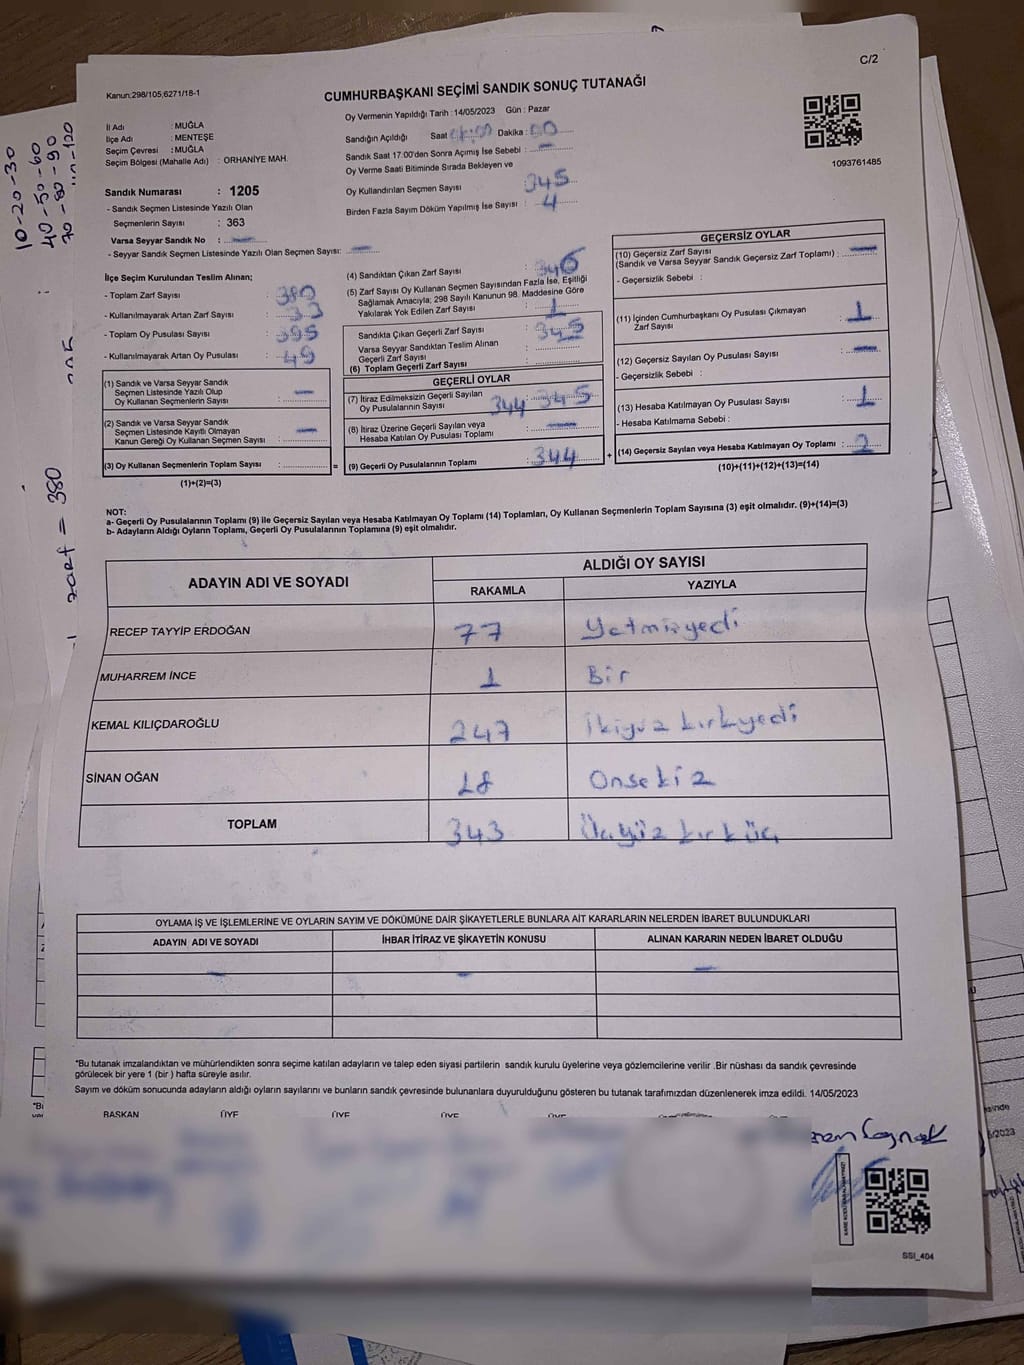 C/2
Kanun:298/105,6271/18-1
CUMHURBAŞKANI SEÇİMİ SANDIK SONUÇ TUTANAĞI
İl Adı : MUĞLA
İlçe Adı : MENTEŞE
Seçim Çevresi : MUĞLA
Seçim Bölgesi (Mahalle Adı) : ORHANİYE MAH.
Sandık Numarası : 1205
- Sandık Seçmen Listesinde Yazılı Olan
Seçmenlerin Sayısı : 363
Varsa Seyyar Sandık No : —
- Seyyar Sandık Seçmen Listesinde Yazılı Olan Seçmen Sayısı: —
Oy Vermenin Yapıldığı Tarih :14/05/2023 Gün : Pazar
Sandığın Açıldığı Saat Dakika : 00
Sandık Saat 17:00'den Sonra Açımış İse Sebebi : —
Oy Verme Saati Bitiminde Sırada Bekleyen ve
Oy Kullandırılan Seçmen Sayısı 345
Birden Fazla Sayım Döküm Yapılmış İse Sayısı : 4
1093761485
İlçe Seçim Kurulundan Teslim Alınan;
- Toplam Zarf Sayısı : 380
- Kullanılmayarak Artan Zarf Sayısı : 33
- Toplam Oy Pusulası Sayısı : 395
- Kullanılmayarak Artan Oy Pusulası : 49
(1) Sandık ve Varsa Seyyar Sandık
Seçmen Listesinde Yazılı Olup
Oy Kullanan Seçmenlerin Sayısı : —
(2) Sandık ve Varsa Seyyar Sandık
Seçmen Listesinde Kayıtlı Olmayan
Kanun Gereği Oy Kullanan Seçmen Sayısı : —
(3) Oy Kullanan Seçmenlerin Toplam Sayısı :
(1)+(2)=(3)
(4) Sandıktan Çıkan Zarf Sayısı : 346
(5) Zarf Sayısı Oy Kullanan Seçmen Sayısından Fazla İse, Eşitliği
Sağlamak Amacıyla; 298 Sayılı Kanunun 98. Maddesine Göre
Yakılarak Yok Edilen Zarf Sayısı : 1
Sandıkta Çıkan Geçerli Zarf Sayısı : 345
Varsa Seyyar Sandıktan Teslim Alınan
Geçerli Zarf Sayısı :
(6) Toplam Geçerli Zarf Sayısı :
=
GEÇERLİ OYLAR
(7) İtiraz Edilmeksizin Geçerli Sayılan
Oy Pusulalarının Sayısı 344 : 345
(8) İtiraz Üzerine Geçerli Sayılan veya
Hesaba Katılan Oy Pusulası Toplamı : —
(9) Geçerli Oy Pusulalarının Toplamı : 344
+
GEÇERSİZ OYLAR
(10) Geçersiz Zarf Sayısı
(Sandık ve Varsa Seyyar Sandık Geçersiz Zarf Toplamı) : —
- Geçersizlik Sebebi :
(11) İçinden Cumhurbaşkanı Oy Pusulası Çıkmayan
Zarf Sayısı : 1
(12) Geçersiz Sayılan Oy Pusulası Sayısı : —
- Geçersizlik Sebebi :
(13) Hesaba Katılmayan Oy Pusulası Sayısı : 1
- Hesaba Katılmama Sebebi :
(14) Geçersiz Sayılan veya Hesaba Katılmayan Oy Toplamı : 2
(10)+(11)+(12)+(13)=(14)
NOT:
a- Geçerli Oy Pusulalarının Toplamı (9) ile Geçersiz Sayılan veya Hesaba Katılmayan Oy Toplamı (14) Toplamları, Oy Kullanan Seçmenlerin Toplam Sayısına (3) eşit olmalıdır. (9)+(14)=(3)
b- Adayların Aldığı Oyların Toplamı, Geçerli Oy Pusulalarının Toplamına (9) eşit olmalıdır.
ADAYIN ADI VE SOYADI
ALDIĞI OY SAYISI
RAKAMLA YAZIYLA
RECEP TAYYİP ERDOĞAN 77 Yetmişyedi
MUHARREM İNCE 1 Bir
KEMAL KILIÇDAROĞLU 247 İkiyüz kırkyedi
SİNAN OĞAN 18 Onsekiz
TOPLAM 343 Üçyüz kırküç
OYLAMA İŞ VE İŞLEMLERİNE VE OYLARIN SAYIM VE DÖKÜMÜNE DAİR ŞİKAYETLERLE BUNLARA AİT KARARLARIN NELERDEN İBARET BULUNDUKLARI
ADAYIN ADI VE SOYADI İHBAR İTİRAZ VE ŞİKAYETİN KONUSU ALINAN KARARIN NEDEN İBARET OLDUĞU
— — —
*Bu tutanak imzalandıktan ve mühürlendikten sonra seçime katılan adayların ve talep eden siyasi partilerin sandık kurulu üyelerine veya gözlemcilerine verilir .Bir nüshası da sandık çevresinde
görülecek bir yere 1 (bir ) hafta süreyle asılır.
Sayım ve döküm sonucunda adayların aldığı oyların sayılarını ve bunların sandık çevresinde bulunanlara duyurulduğunu gösteren bu tutanak tarafımızdan düzenlenerek imza edildi. 14/05/2023
BAŞKAN ÜYE ÜYE ÜYE ÜYE
SSI_404
10-20-30
40-50-60
70-80-90
zarf = 380
*Bi